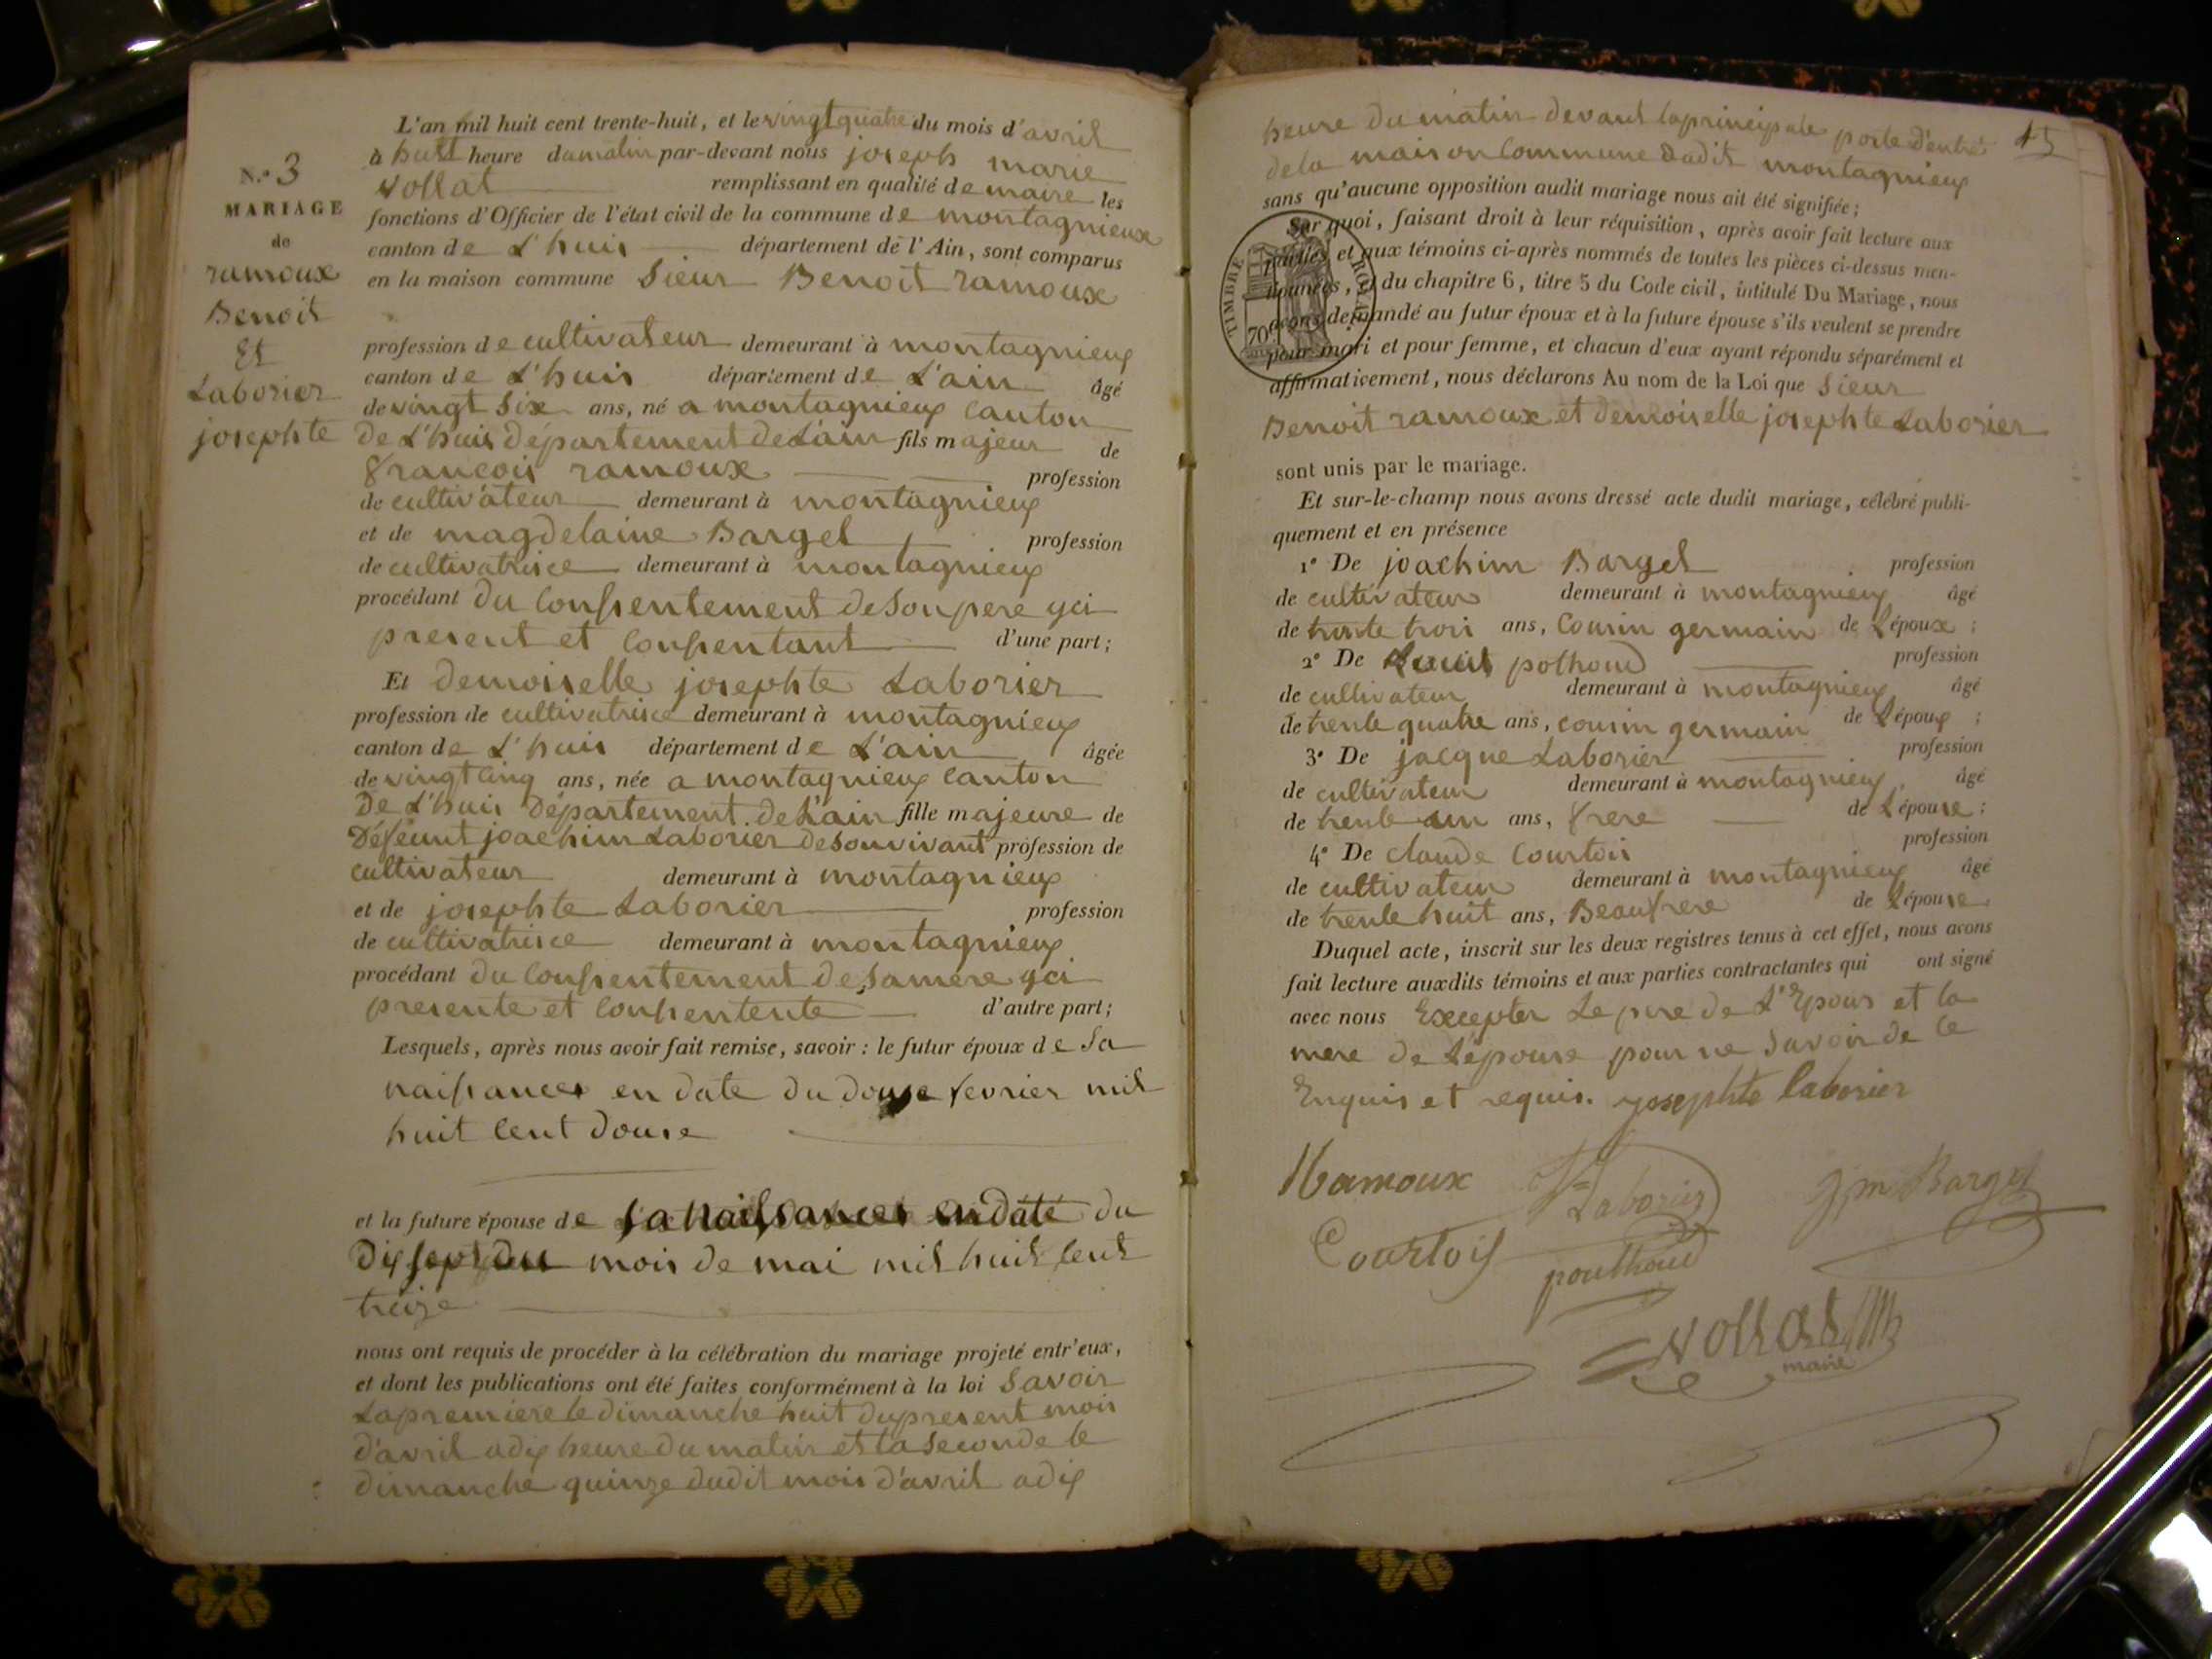 N.° 3
MARIAGE
de
ramoux
Benoit
Et
Laborier
josephte
L'an mil huit cent trente-huit, et le vingt quatre du mois d'avril
à huit heure du matin par-devant nous joseph marie
vollat remplissant en qualité de maire les
fonctions d'Officier de l'état civil de la commune de montagnieux
canton de L'huis département de l'Ain, sont comparus
en la maison commune Sieur Benoit ramoux
profession de cultivateur demeurant à montagnieux
canton de L'huis département de L'ain âgé
de vingt Six ans, né a montagnieux Canton
De L'huis Département De L'ain fils majeur de
françois ramoux profession
de cultivateur demeurant à montagnieux
et de magdelaine Bargel profession
de cultivatrisce demeurant à montagnieux
procédant Du Consentement de Son pere yci
present et Consentant d'une part;
Et Demoiselle josephte Laborier
profession de cultivatrisce demeurant à montagnieux
canton de L'huis département de L'ain âgée
de vingt Cinq ans, née a montagnieux Canton
De L'huis Département de L'ain fille majeure de
Défeunt joachim Laborier De Son vivant profession de
cultivateur demeurant à montagnieux
et de josephte Laborier profession
de cultivatrisce demeurant à montagnieux
procédant du Consentement de Sa mere yci
presente et Consentente d'autre part;
Lesquels, après nous avoir fait remise, savoir : le futur époux de Sa
naissances en date du douze fevrier mil
huit Cent Douse
et la future épouse de Sa naissances en daté du
Dix sept du mois de mai mil huit Cent
treize
nous ont requis de procéder à la célébration du mariage projeté entr'eux,
et dont les publications ont été faites conformément à la loi Savoir
La premiere le dimanche huit du present mois
d'avril a dix heure du matin et la Seconde le
dimanche quinze dudit mois d'avril a dix
15
heure Du matin Devant la principale porte D'entré
de la maison Commune Dudit montagnieux
sans qu'aucune opposition audit mariage nous ait été signifiée;
Sur quoi, faisant droit à leur réquisition, après avoir fait lecture aux
parties et aux témoins ci-après nommés de toutes les pièces ci-dessus men-
tionnées, et du chapitre 6, titre 5 du Code civil, intitulé Du Mariage, nous
avons demandé au futur époux et à la future épouse s'ils veulent se prendre
pour mari et pour femme, et chacun d'eux ayant répondu séparément et
affirmativement, nous déclarons Au nom de la Loi que Sieur
TIMBRE ROYAL
70
Benoit ramoux et demoiselle josephte Laborier
sont unis par le mariage.
Et sur-le-champ nous avons dressé acte dudit mariage, célébré publi-
quement et en présence
1° De joachim Bargel profession
de cultivateur demeurant à montagnieux âgé
de trente trois ans, Cousin germain de L'époux ;
2° De Louis polhoud profession
de cultivateur demeurant à montagnieux âgé
de trente quatre ans, cousin germain de L'époux ;
3° De jacque Laborier profession
de cultivateur demeurant à montagnieux âgé
de trente un ans, frere de L'épouse ;
4° De claude Courtois profession
de cultivateur demeurant à montagnieux âgé
de trente huit ans, Beaufrere de L'épouse
Duquel acte, inscrit sur les deux registres tenus à cet effet, nous avons
fait lecture auxdits témoins et aux parties contractantes qui ont signé
avec nous Excepter Le pere de L'Epous et la
mere de L'épouse pour ne Savoir de Ce
Enquis et requis. josephte laborier
Ramoux
Laborier
Jm Bargel
Courtois
pouthoud
vollat
maire